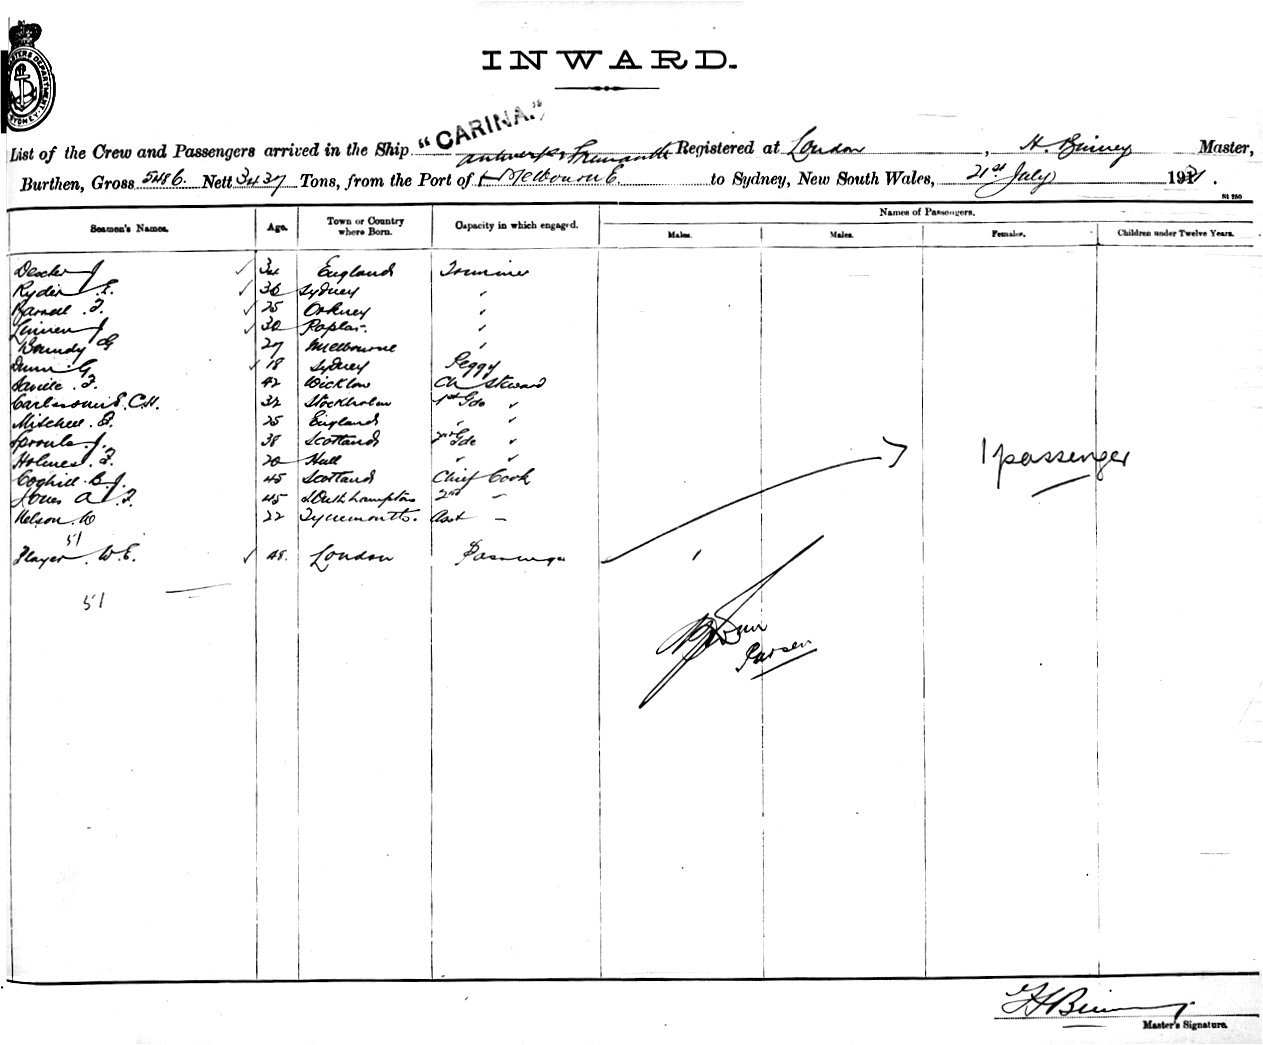 INWARD.
SYDNEY
List of the Crew and Passengers arrived in the Ship "CARINA." Antwerp Fremantle Registered at London, H. Binney Master,
Burthen, Gross 5486. Nett 3437 Tons, from the Port of + Melbourne. to Sydney, New South Wales, 21st July 192
St 280
Seamen's Names. Age. Town or Country where Born. Capacity in which engaged. Names of Passengers.
Males. Males. Females. Children under Twelve Years.
J 34 England Trimmer
Ryder E. 36 Sydney "
F. 25 Orkney "
J 30 Poplar. "
Boundy G 27 Melbourne "
Dunn G 18 Sydney Peggy
F. 42 Wicklow Ch Steward
C.H. 32 Stockholm 1st Gde "
Mitchell. E. 25 England " "
Sproule. J. 38 Scotland 2nd Gde "
Holmes. F. 20 Hull " "
Coghill. B. J. 45 Scotland Chief Cook
Jones A F. 45 Southampton 2nd "
Nelson. W 22 Tynemouth. Asst "
51
Player. W.E. 48. London Passenger 1
1 passenger
51
Master's Signature.